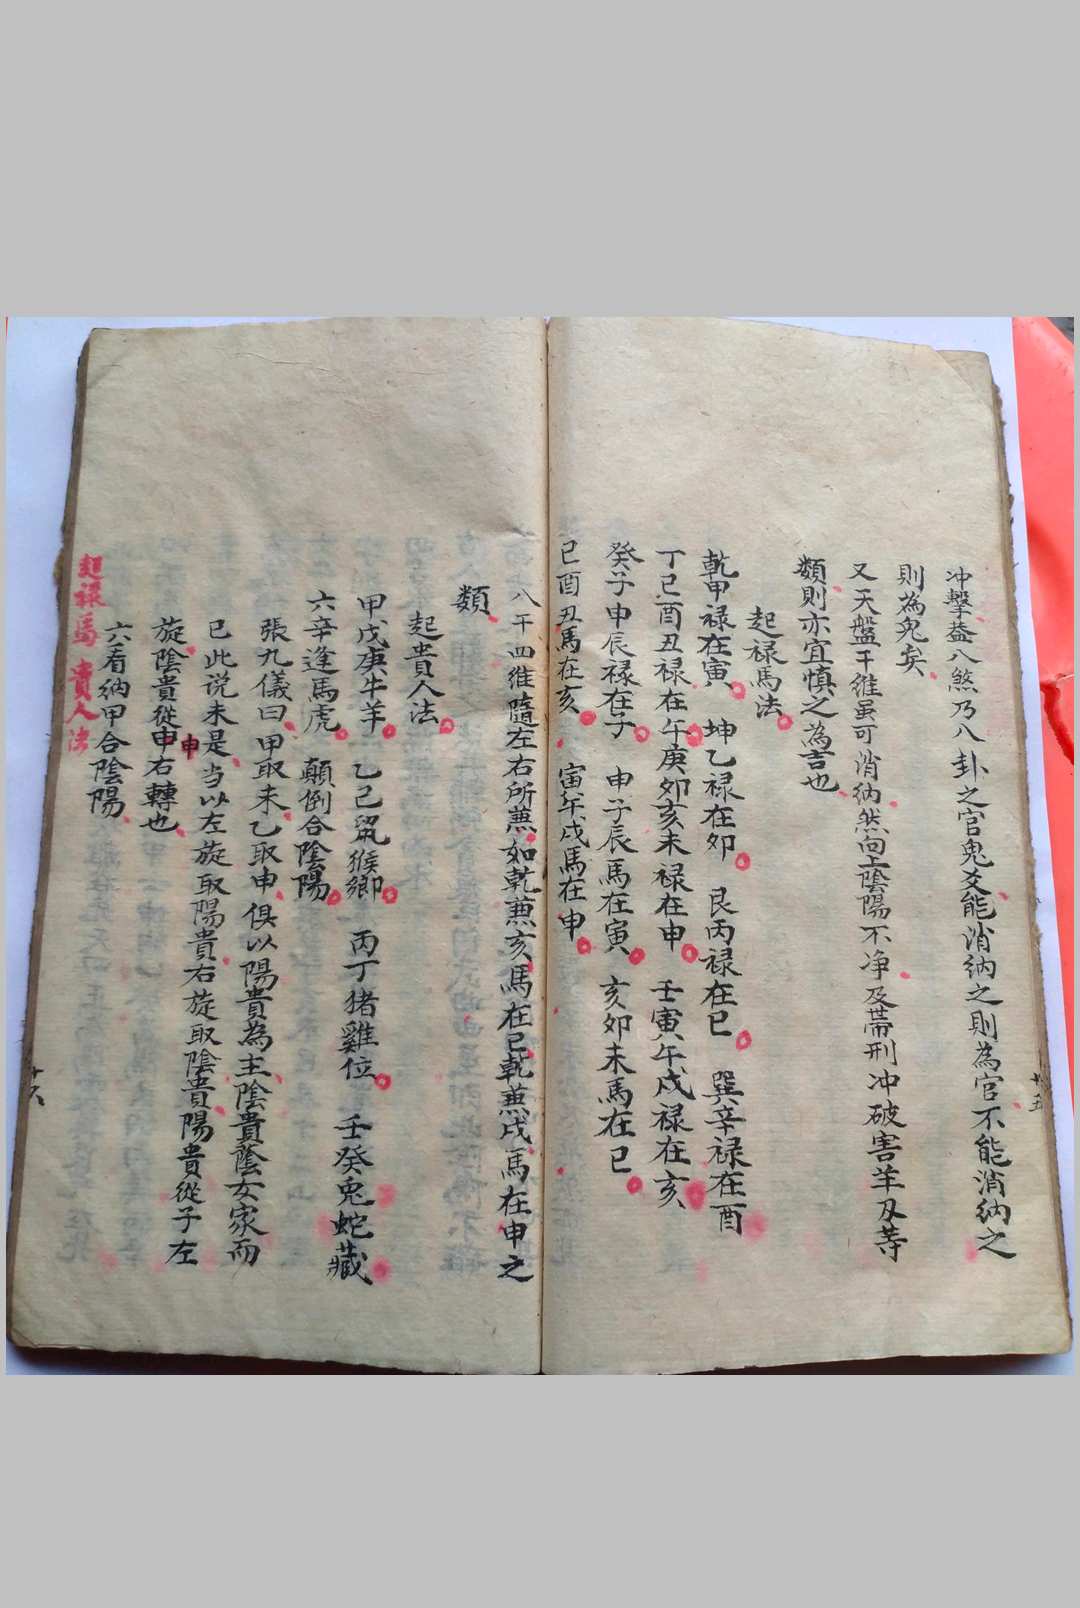 冲擊蓋八煞乃八卦之官鬼爻能消納之則為官不能消納之
則為鬼矣
又天盤干維虽可消納然向上陰陽不净及帶刑冲破害羊刃等
類則亦宜慎之為吉也
起禄馬法
乾甲禄在寅 坤乙禄在卯 艮丙禄在巳 巽辛禄在酉
丁巳酉丑禄在午 庚卯亥未禄在申 壬寅午戌禄在亥
癸子申辰禄在子 申子辰馬在寅 亥卯未馬在巳
巳酉丑馬在亥 寅午戌馬在申
廿五
八干四維隨左右所蒹如乾蒹亥馬在巳乾蒹戌馬在申之
類
起貴人法
甲戊庚牛羊 乙己鼠猴鄉 丙丁猪雞位 壬癸兎蛇藏
六辛逢馬虎 顛倒合陰陽
張九儀曰甲取未乙取申俱以陽貴為主陰貴蔭女家而
已此说未是当以左旋取陽貴右旋取陰貴陽貴從子左
旋陰貴從申右轉也
申
六看納甲合陰陽
起禄馬貴人法
廿六